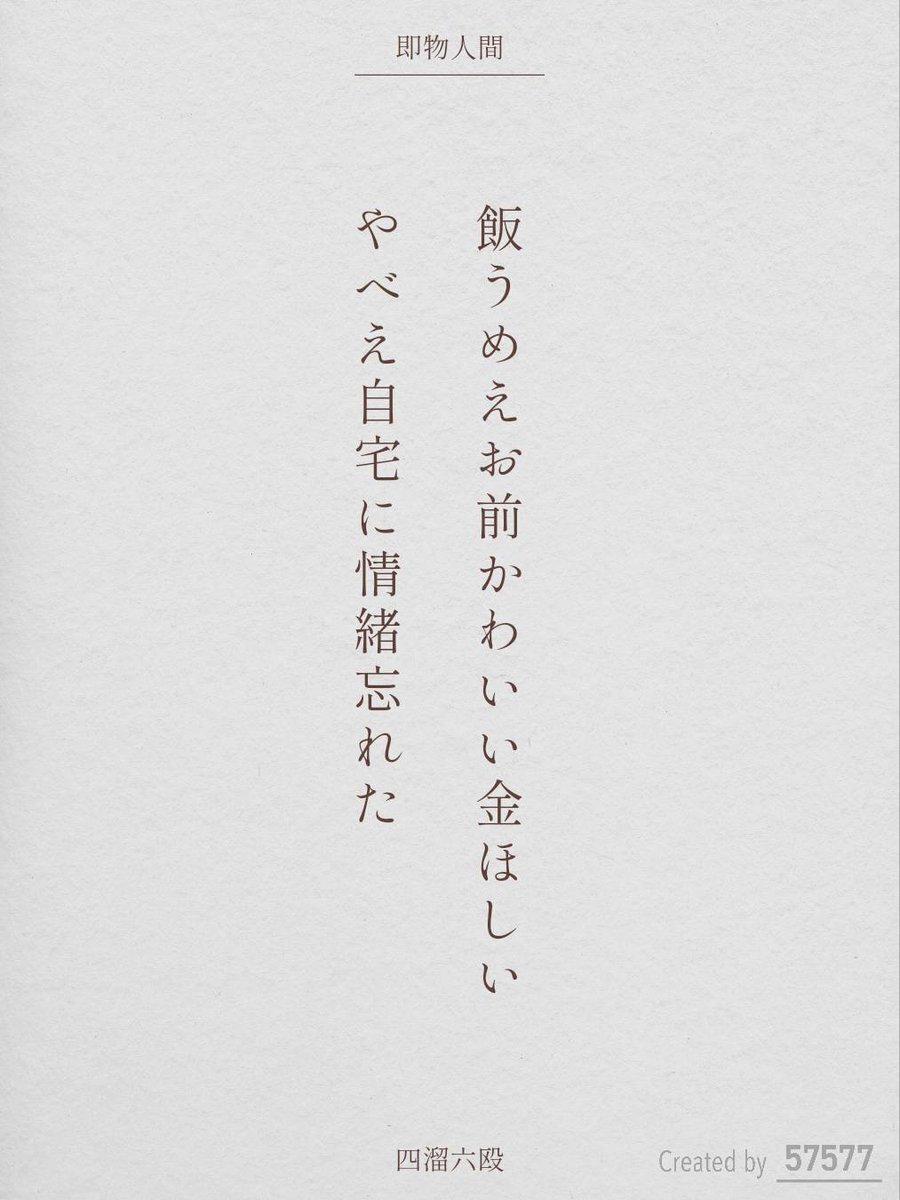 即物人間
飯うめえお前かわいい金ほしい
やべえ自宅に情緒忘れた
四溜六殴
Created by 57577